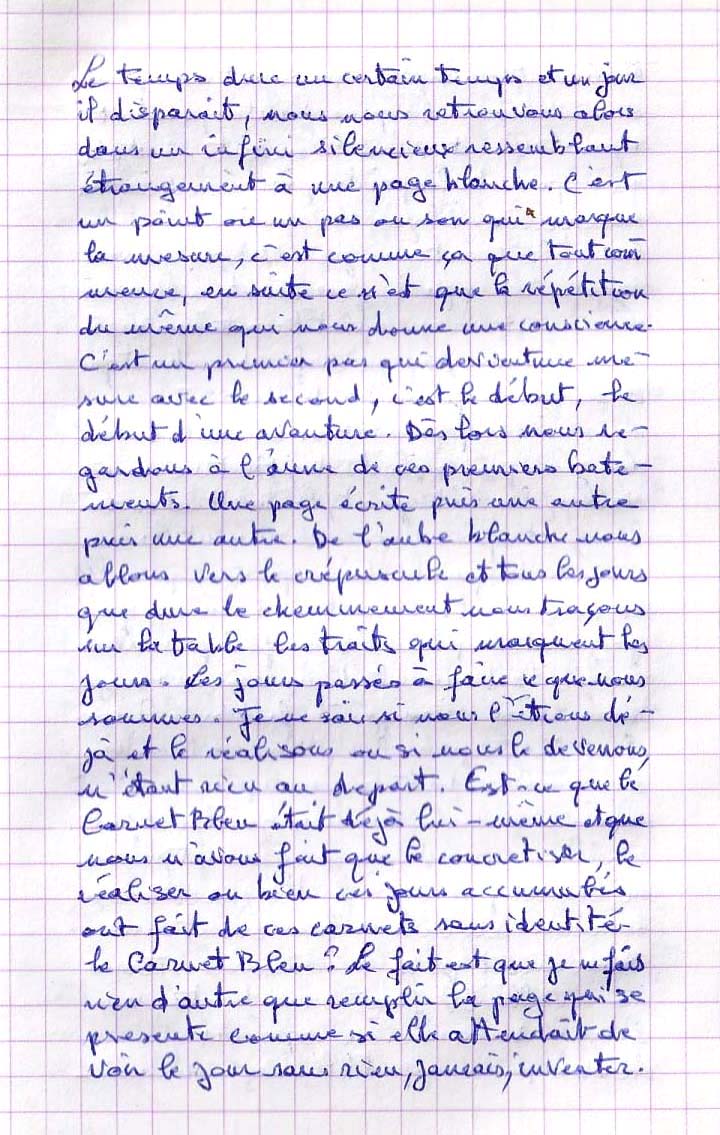 Le temps dure un certain temps et un jour
il disparait, nous nous retrouvons alors
dans un infini silencieux ressemblant
étrangement à une page blanche. C'est
un point ou un pas ou son qui marque
la mesure, c'est comme ça que tout com
mence, en suite ce n'est que la répétition
du même qui nous donne une conscience.
C'est un premier pas qui devient une me-
sure avec le second, c'est le début, le
début d'une avanture. Dès lors nous re-
gardons à l'aune de ces premiers bate-
ments. Une page écrite puis une autre
puis une autre. De l'aube blanche nous
allons vers le crépuscule et tous les jours
que dure le cheminement nous traçons
sur la table les traits qui marquent les
jours. Les jours passés à faire ce que nous
sommes. Je ne sais si nous l'étions dé-
jà et le réalisons ou si nous le devenons,
n'étant rien au depart. Est-ce que le
Carnet Bleu était déjà lui-même et que
nous n'avons fait que le concretiser, le
réaliser ou bien ces jours accumulés
ont fait de ces carnets sans identité
le Carnet Bleu ? Le fait est que je ne fais
rien d'autre que remplir la page qui se
presente comme si elle attendait de
voir le jour sans rien, jamais, inventer.